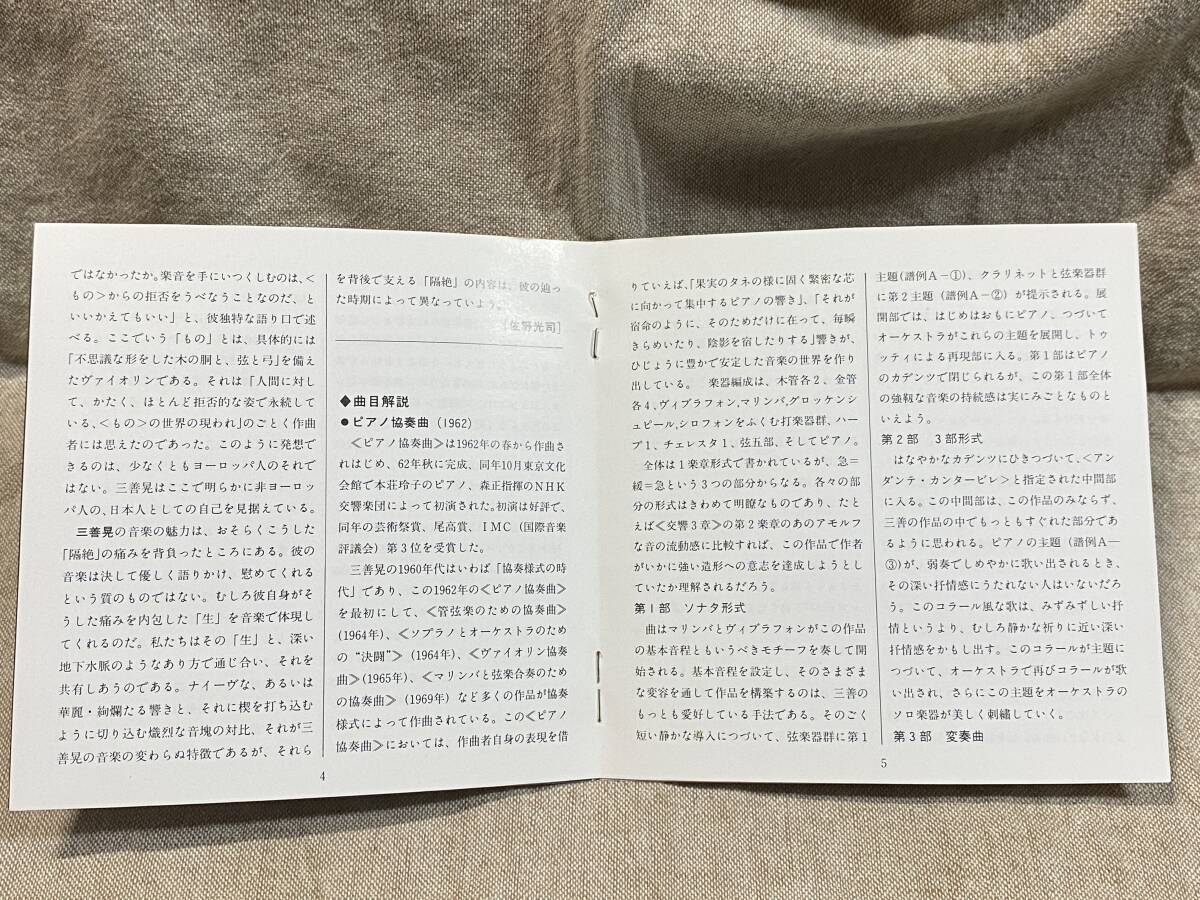 ではなかったか。楽音を手にいつくしむのは、<
もの>からの拒否をうべなうことなのだ、と
いいかえてもいい」と、彼独特な語り口で述
べる。ここでいう「もの」とは、具体的には
「不思議な形をした木の胴と、弦と弓」を備え
たヴァイオリンである。それは「人間に対し
て、かたく、ほとんど拒否的な姿で永続して
いる、<もの>の世界の現われ」のごとく作曲
者には思えたのであった。このように発想で
きるのは、少なくともヨーロッパ人のそれで
はない。三善晃はここで明らかに非ヨーロッ
パ人の、日本人としての自己を見据えている。
三善晃の音楽の魅力は、おそらくこうした
「隔絶」の痛みを背負ったところにある。彼の
音楽は決して優しく語りかけ、慰めてくれる
という質のものではない。むしろ彼自身がそ
うした痛みを内包した「生」を音楽で体現し
てくれるのだ。私たちはその「生」と、深い
地下水脈のようなあり方で通じ合い、それを
共有しあうのである。ナイーヴな、あるいは
華麗・絢爛たる響きと、それに楔を打ち込む
ように切り込む熾烈な音塊の対比、それが三
善晃の音楽の変わらぬ特徴であるが、それら
を背後で支える「隔絶」の内容は、彼の辿っ
た時期によって異なっていよう。
［佐野光司］
◆曲目解説
●ピアノ協奏曲（1962）
≪ピアノ協奏曲≫は1962年の春から作曲さ
れはじめ、62年秋に完成、同年10月東京文化
会館で本荘玲子のピアノ、森正指揮のNHK
交響楽団によって初演された。初演は好評で、
同年の芸術祭賞、尾高賞、IMC（国際音楽
評議会）第3位を受賞した。
三善晃の1960年代はいわば「協奏様式の時
代」であり、この1962年の≪ピアノ協奏曲≫
を最初にして、≪管弦楽のための協奏曲≫
(1964年)、≪ソプラノとオーケストラのため
の“決闘”≫（1964年）、≪ヴァイオリン協奏
曲≫(1965年)、≪マリンバと弦楽合奏のため
の協奏曲≫（1969年）など多くの作品が協奏
様式によって作曲されている。この≪ピアノ
協奏曲≫においては、作曲者自身の表現を借
4
りていえば、「果実のタネの様に固く緊密な芯
に向かって集中するピアノの響き」、「それが
宿命のように、そのためだけに在って、毎瞬
きらめいたり、陰影を宿したりする」響きが、
ひじょうに豊かで安定した音楽の世界を作り
出している。　楽器編成は、木管各2、金管
各4、ヴィブラフォン,マリンバ,グロッケンシ
ュピール,シロフォンをふくむ打楽器群、ハー
プ1、チェレスタ1、弦五部、そしてピアノ。
全体は1楽章形式で書かれているが、急＝
緩＝急という3つの部分からなる。各々の部
分の形式はきわめて明瞭なものであり、たと
えば≪交響3章≫の第2楽章のあのアモルフ
な音の流動感に比較すれば、この作品で作者
がいかに強い造形への意志を達成しようとし
ていたか理解されるだろう。
第1部　ソナタ形式
曲はマリンバとヴィブラフォンがこの作品
の基本音程ともいうべきモチーフを奏して開
始される。基本音程を設定し、そのさまざま
な変容を通して作品を構築するのは、三善の
もっとも愛好している手法である。そのごく
短い静かな導入につづいて、弦楽器群に第1
主題(譜例A－①)、クラリネットと弦楽器群
に第2主題（譜例A－②）が提示される。展
開部では、はじめはおもにピアノ、つづいて
オーケストラがこれらの主題を展開し、トゥ
ッティによる再現部に入る。第1部はピアノ
のカデンツで閉じられるが、この第1部全体
の強靱な音楽の持続感は実にみごとなものと
いえよう。
第2部　3部形式
はなやかなカデンツにひきつづいて、<アン
ダンテ・カンタービレ>と指定された中間部
に入る。この中間部は、この作品のみならず、
三善の作品の中でもっともすぐれた部分であ
るように思われる。ピアノの主題（譜例A―
③)が、弱奏でしめやかに歌い出されるとき、
その深い抒情感にうたれない人はいないだろ
う。このコラール風な歌は、みずみずしい抒
情というより、むしろ静かな祈りに近い深い
抒情感をかもし出す。このコラールが主題に
つづいて、オーケストラで再びコラールが歌
い出され、さらにこの主題をオーケストラの
ソロ楽器が美しく刺繡していく。
第3部　変奏曲
5